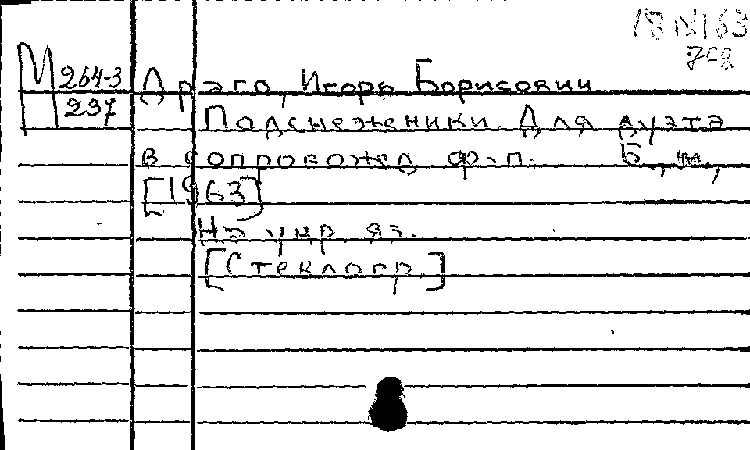 18 №163
М 264-3
237
Драго, Игорь Борисович
Подснежники Для дуэта
в сопровожд ф.-п. Б. м.,
[1963]
На укр. яз.
[Стеклогр.]